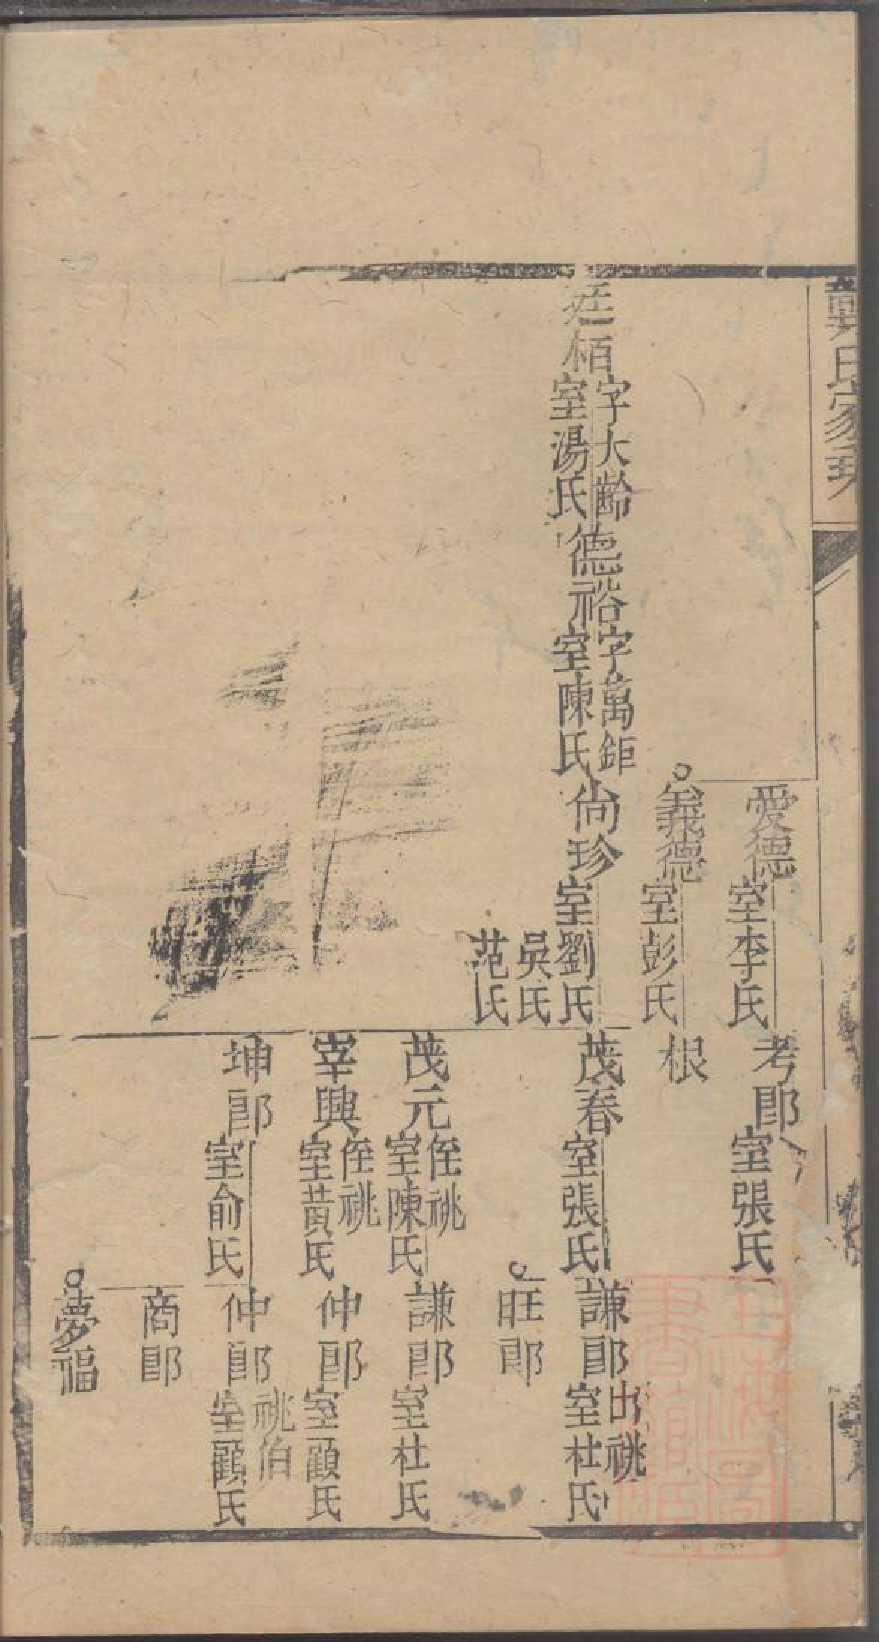 愛德 室李氏 考郎 室張氏
義德 室彭氏 根
廷栢 字大齡 室湯氏 德裕 字萬鉅 室陳氏 尚珍 室劉氏 吳氏 范氏 茂春 室張氏 謙郎 出祧 室杜氏
旺郎
茂元 侄祧 室陳氏 謙郎 室杜氏
宰興 侄祧 室黃氏 仲郎 室顧氏
坤郎 室俞氏 仲郎 祧伯 室顧氏
商郎
夢福